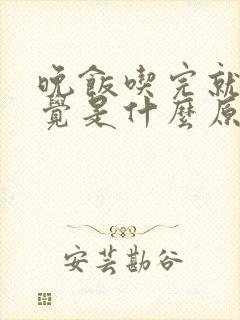 晚飯喫完就
覺是什麼原
安芸勘谷